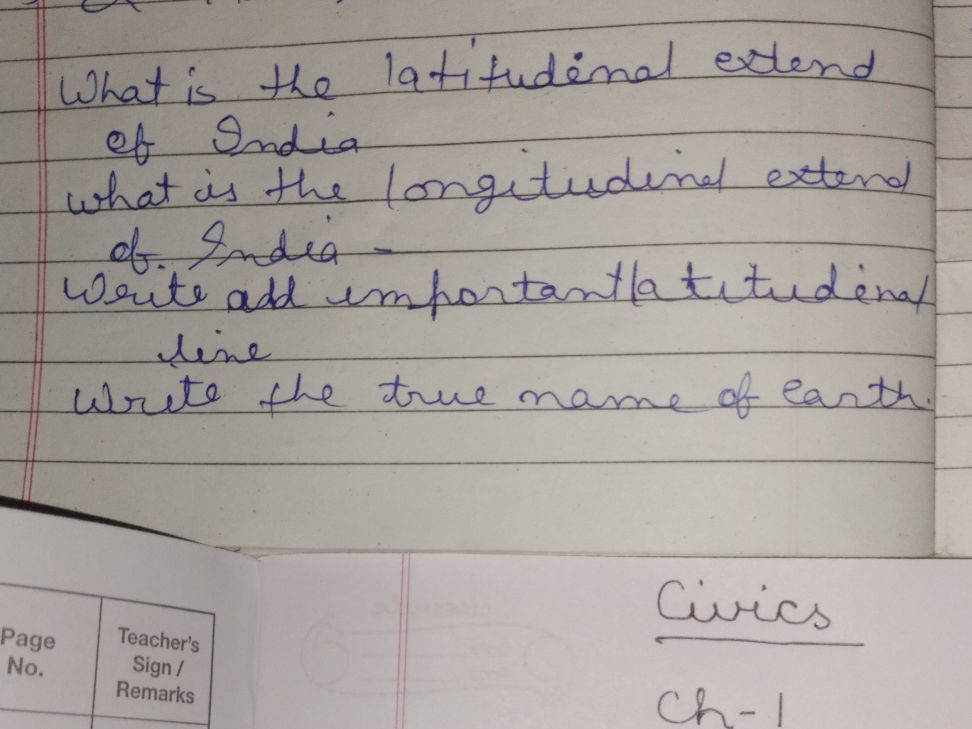 What is the latitudenal extend
of India
what is the longitudinal extend
of. India -
Write add important latitudenal
line
Write the true name of earth.
Civics
Ch-1
Page
No.
Teacher's
Sign /
Remarks